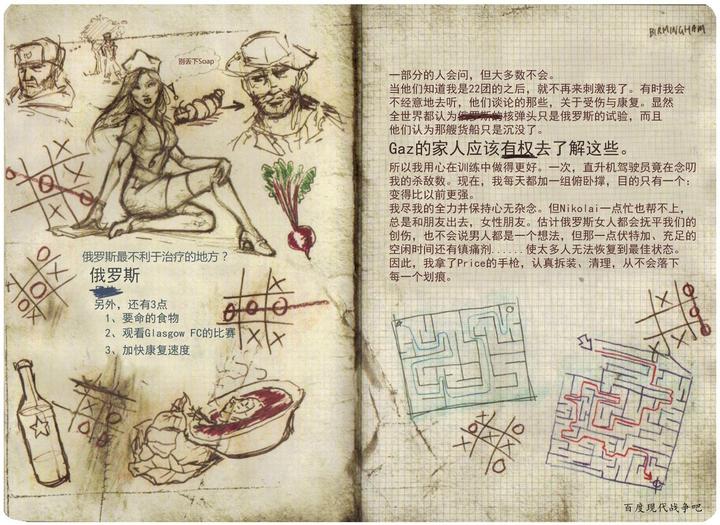 别丢下Soap
俄罗斯最不利于治疗的地方？
俄罗斯
另外，还有3点
1、要命的食物
2、观看Glasgow FC的比赛
3、加快康复速度
BIRMINGHAM
一部分的人会问，但大多数不会。
当他们知道我是22团的之后，就不再来刺激我了。有时我会
不经意地去听，他们谈论的那些，关于受伤与康复。显然
全世界都认为俄罗斯的核弹头只是俄罗斯的试验，而且
他们认为那艘货船只是沉没了。
Gaz的家人应该有权去了解这些。
所以我用心在训练中做得更好。一次，直升机驾驶员竟在念叨
我的杀敌数。现在，我每天都加一组俯卧撑，目的只有一个：
变得比以前更强。
我尽我的全力并保持心无杂念。但Nikolai一点忙也帮不上，
总是和朋友出去，女性朋友。估计俄罗斯女人都会抚平我们的
创伤，也不会说男人都是一个想法，但那一点伏特加、充足的
空闲时间还有镇痛剂......使太多人无法恢复到最佳状态。
因此，我拿了Price的手枪，认真拆装、清理，从不会落下
每一个划痕。
百度现代战争吧